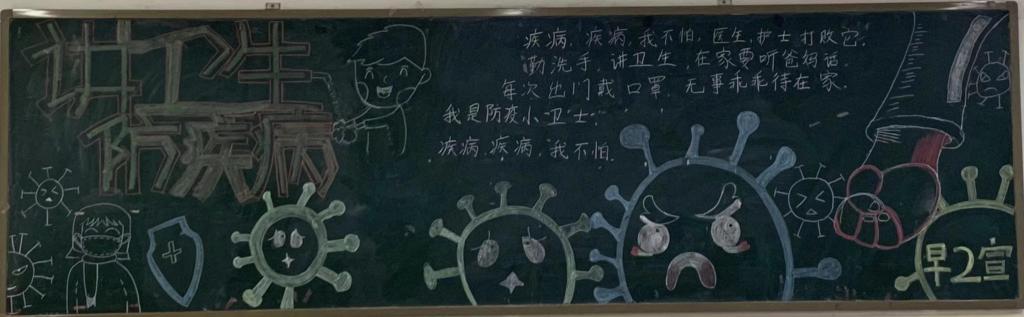 讲卫生
防疾病
疾病,疾病,我不怕,医生,护士打败它.
勤洗手,讲卫生,在家要听爸妈话.
每次出门戴口罩,无事乖乖待在家.
我是防疫小卫士,
疾病,疾病,我不怕.
早2宣